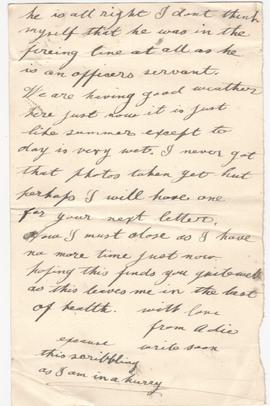 he is all right I dont think
myself that he was in the
fireing line at all as he
is an officers servant.
We are having good weather
here just now it is just
like summer exept to
day is very wet. I never got
that photos taken yet but
perhaps I will have one
for your next letter.
Now I must close as I have
no more time just now.
hoping this finds you quite well
as this leaves me in the best
of health. with love
from Adie
epcuse write soon
this scribbling
as I am in a hurry